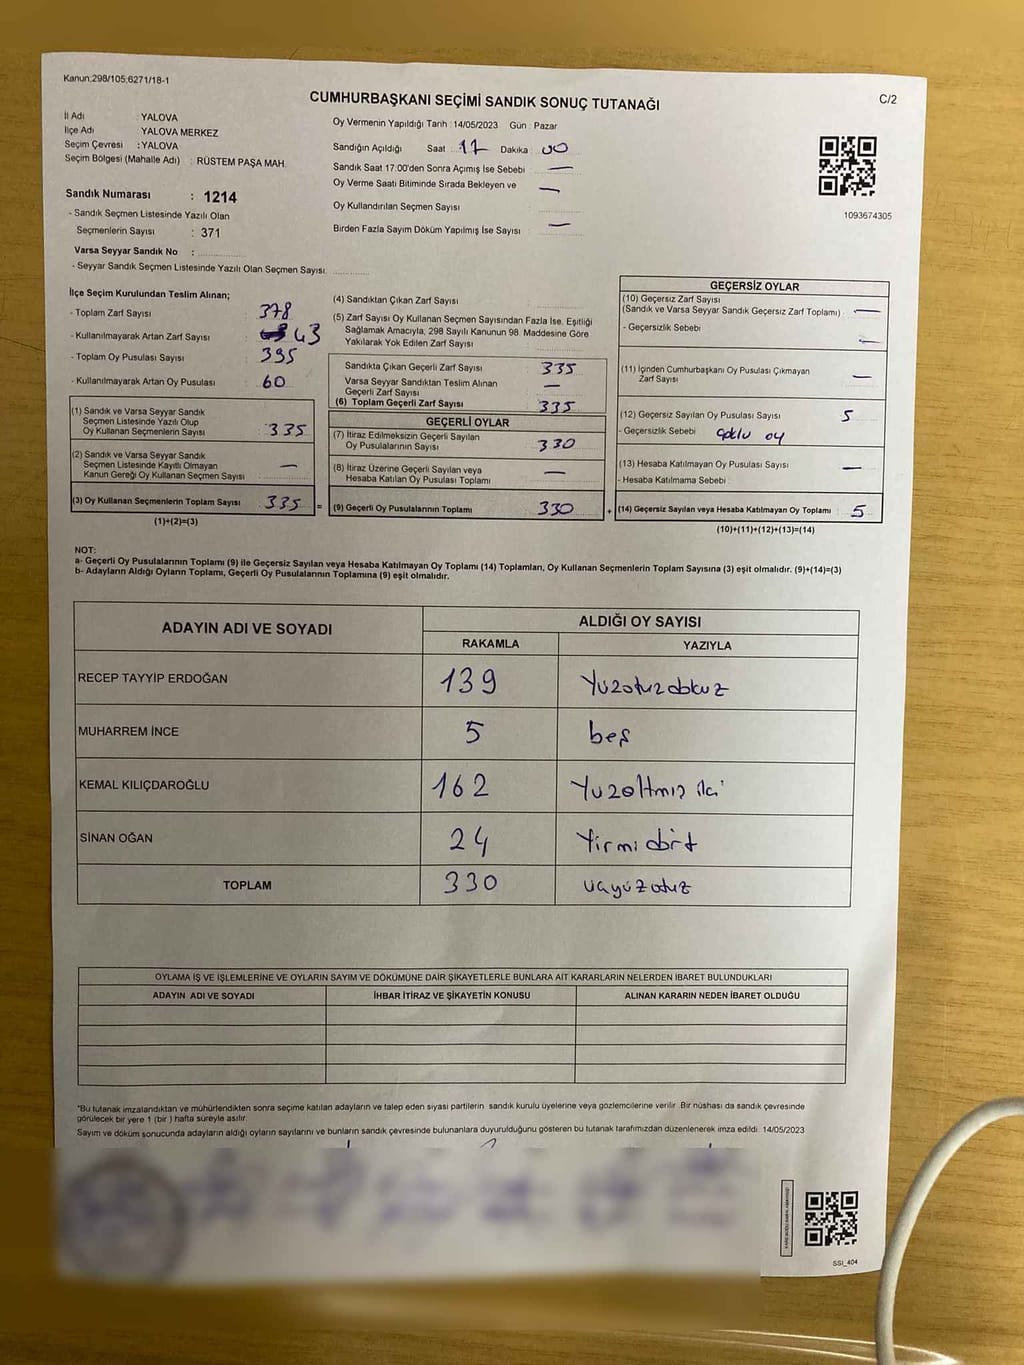 Kanun;298/105;6271/18-1
C/2
CUMHURBAŞKANI SEÇİMİ SANDIK SONUÇ TUTANAĞI
İl Adı : YALOVA
İlçe Adı YALOVA MERKEZ
Seçim Çevresi : YALOVA
Seçim Bölgesi (Mahalle Adı) : RÜSTEM PAŞA MAH.
Sandık Numarası : 1214
- Sandık Seçmen Listesinde Yazılı Olan
Seçmenlerin Sayısı : 371
Varsa Seyyar Sandık No :
- Seyyar Sandık Seçmen Listesinde Yazılı Olan Seçmen Sayısı
Oy Vermenin Yapıldığı Tarih : 14/05/2023 Gün : Pazar
Sandığın Açıldığı Saat 17 Dakika 00
Sandık Saat 17:00'den Sonra Açımış İse Sebebi —
Oy Verme Saati Bitiminde Sırada Bekleyen ve —
Oy Kullandırılan Seçmen Sayısı
Birden Fazla Sayım Döküm Yapılmış İse Sayısı —
1093674305
İlçe Seçim Kurulundan Teslim Alınan;
- Toplam Zarf Sayısı : 378
- Kullanılmayarak Artan Zarf Sayısı : 43
- Toplam Oy Pusulası Sayısı : 395
- Kullanılmayarak Artan Oy Pusulası : 60
(1) Sandık ve Varsa Seyyar Sandık
Seçmen Listesinde Yazılı Olup
Oy Kullanan Seçmenlerin Sayısı : 335
(2) Sandık ve Varsa Seyyar Sandık
Seçmen Listesinde Kayıtlı Olmayan
Kanun Gereği Oy Kullanan Seçmen Sayısı —
(3) Oy Kullanan Seçmenlerin Toplam Sayısı 335 =
(1)+(2)=(3)
(4) Sandıktan Çıkan Zarf Sayısı
(5) Zarf Sayısı Oy Kullanan Seçmen Sayısından Fazla İse, Eşitliği
Sağlamak Amacıyla, 298 Sayılı Kanunun 98. Maddesine Göre
Yakılarak Yok Edilen Zarf Sayısı
Sandıkta Çıkan Geçerli Zarf Sayısı 335
Varsa Seyyar Sandıktan Teslim Alınan
Geçerli Zarf Sayısı —
(6) Toplam Geçerli Zarf Sayısı 335
GEÇERLİ OYLAR
(7) İtiraz Edilmeksizin Geçerli Sayılan
Oy Pusulalarının Sayısı 330
(8) İtiraz Üzerine Geçerli Sayılan veya
Hesaba Katılan Oy Pusulası Toplamı —
(9) Geçerli Oy Pusulalarının Toplamı 330 +
GEÇERSİZ OYLAR
(10) Geçersiz Zarf Sayısı
(Sandık ve Varsa Seyyar Sandık Geçersiz Zarf Toplamı) —
- Geçersizlik Sebebi —
(11) İçinden Cumhurbaşkanı Oy Pusulası Çıkmayan
Zarf Sayısı —
(12) Geçersiz Sayılan Oy Pusulası Sayısı 5
- Geçersizlik Sebebi oy
(13) Hesaba Katılmayan Oy Pusulası Sayısı —
- Hesaba Katılmama Sebebi :
(14) Geçersiz Sayılan veya Hesaba Katılmayan Oy Toplamı : 5
(10)+(11)+(12)+(13)=(14)
NOT:
a- Geçerli Oy Pusulalarının Toplamı (9) ile Geçersiz Sayılan veya Hesaba Katılmayan Oy Toplamı (14) Toplamları, Oy Kullanan Seçmenlerin Toplam Sayısına (3) eşit olmalıdır. (9)+(14)=(3)
b- Adayların Aldığı Oyların Toplamı, Geçerli Oy Pusulalarının Toplamına (9) eşit olmalıdır.
ADAYIN ADI VE SOYADI
ALDIĞI OY SAYISI
RAKAMLA YAZIYLA
RECEP TAYYİP ERDOĞAN 139 Yüzotuzdokuz
MUHARREM İNCE 5 beş
KEMAL KILIÇDAROĞLU 162 Yüzaltmış iki
SİNAN OĞAN 24 Yirmi dört
TOPLAM 330 üçyüzotuz
OYLAMA İŞ VE İŞLEMLERİNE VE OYLARIN SAYIM VE DÖKÜMÜNE DAİR ŞİKAYETLERLE BUNLARA AİT KARARLARIN NELERDEN İBARET BULUNDUKLARI
ADAYIN ADI VE SOYADI İHBAR İTİRAZ VE ŞİKAYETİN KONUSU ALINAN KARARIN NEDEN İBARET OLDUĞU
*Bu tutanak imzalandıktan ve mühürlendikten sonra seçime katılan adayların ve talep eden siyasi partilerin sandık kurulu üyelerine veya gözlemcilerine verilir. Bir nüshası da sandık çevresinde
görülecek bir yere 1 (bir) hafta süreyle asılır.
Sayım ve döküm sonucunda adayların aldığı oyların sayılarını ve bunların sandık çevresinde bulunanlara duyurulduğunu gösteren bu tutanak tarafımızdan düzenlenerek imza edildi. 14/05/2023
SSI_404